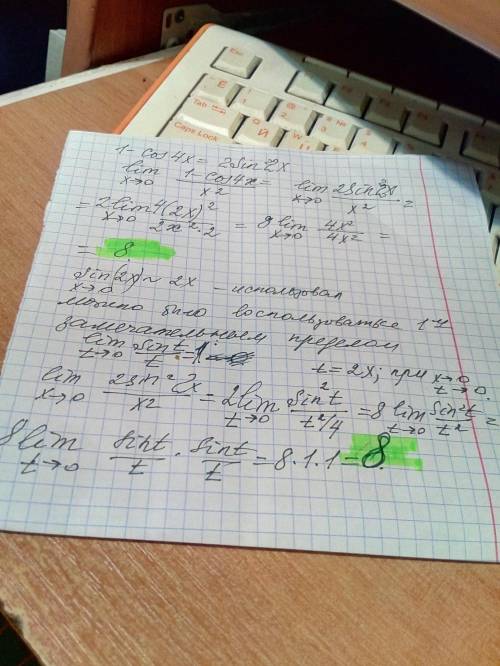 Esc
Tab
Caps Lock
1-cos4x = 2sin²2x
lim x→0 (1-cos4x)/x² = lim x→0 (2sin²2x)/x² =
= 2lim x→0 4(2x)²/(2x²·2) = 8lim x→0 4x²/4x² =
= 8.
sin(2x) ~ 2x - использовал
x→0
можно было воспользоваться 1-м
замечательным пределом
lim t→0 sint/t = 1
t = 2x; при x→0 t→0.
lim x→0 2sin²2x/x² = 2lim t→0 sin²t/(t²/4) = 8 lim t→0 sin²t/t² =
8lim t→0 sint/t · sint/t = 8·1·1 = 8.